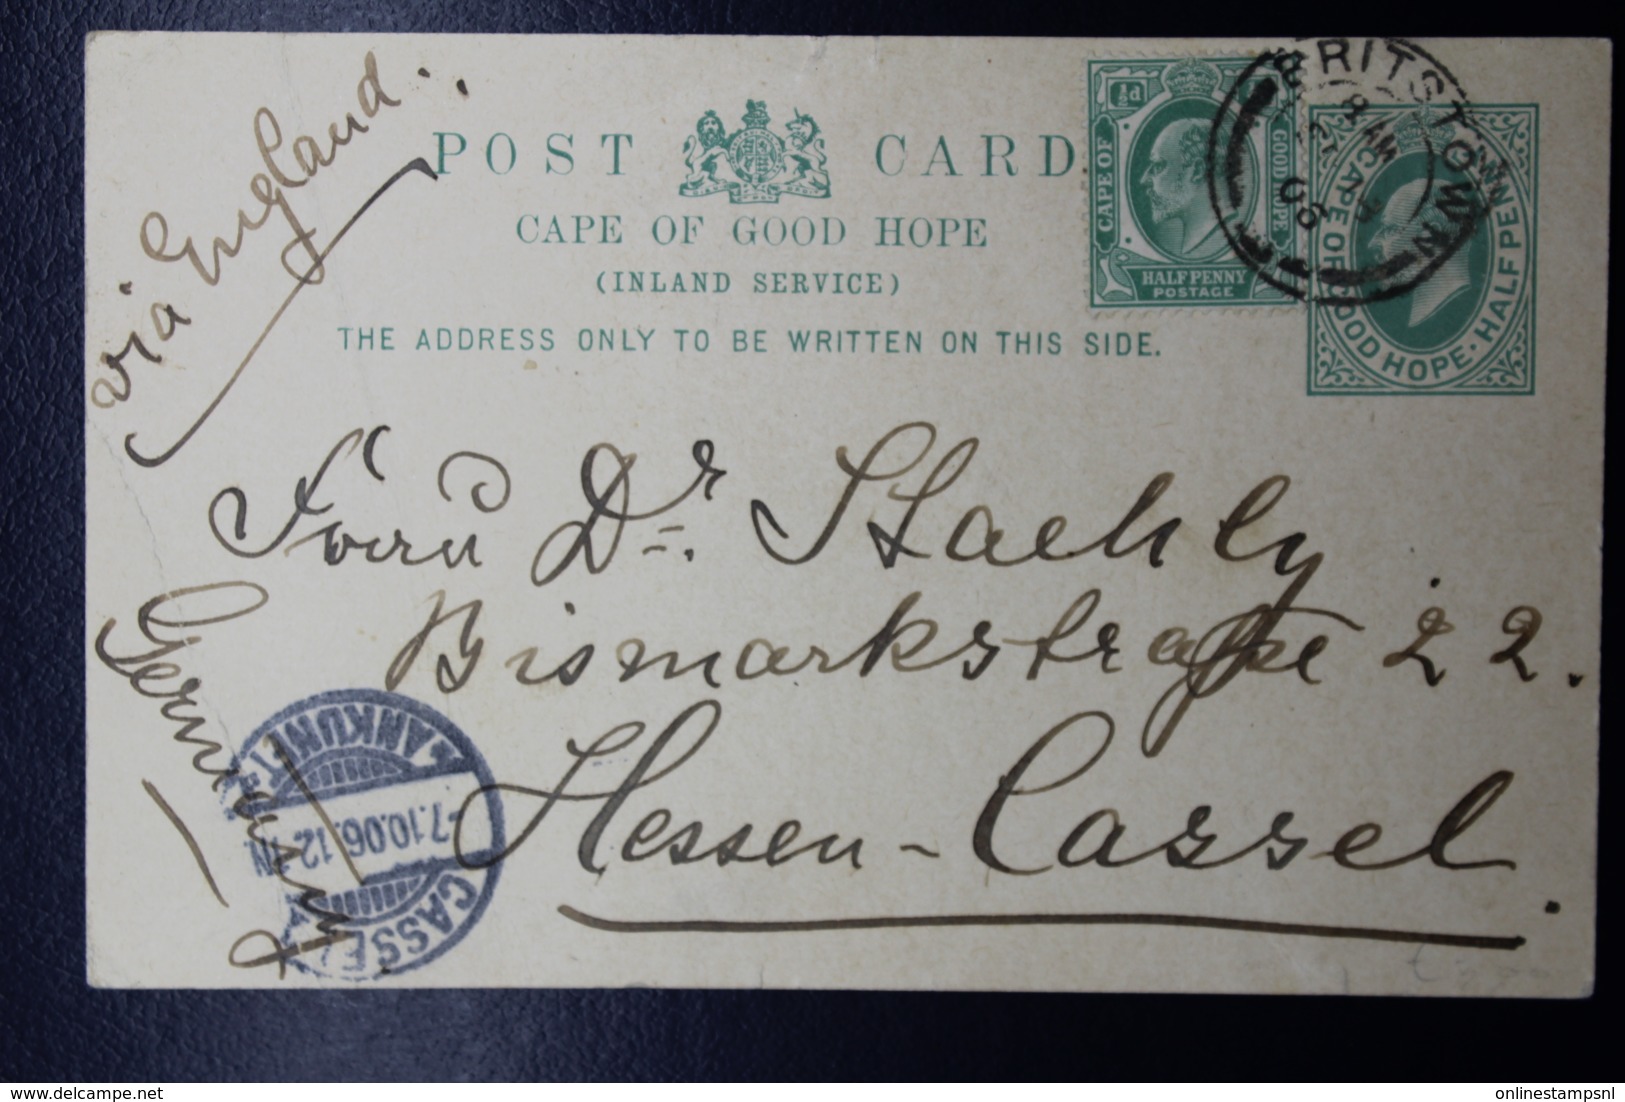 via England
POST CARD
CAPE OF GOOD HOPE
(INLAND SERVICE)
THE ADDRESS ONLY TO BE WRITTEN ON THIS SIDE.
½d
CAPE OF GOOD HOPE
HALFPENNY
POSTAGE
CAPE OF GOOD HOPE · HALFPENNY
BRITSTOWN
8 AM
06
Frau Dr. Staehly
Bismarkstraße 22.
Hessen-Cassel.
Germany
CASSEL
-7.10.06.12-1N
ANKUNFT
onlinestampsnl